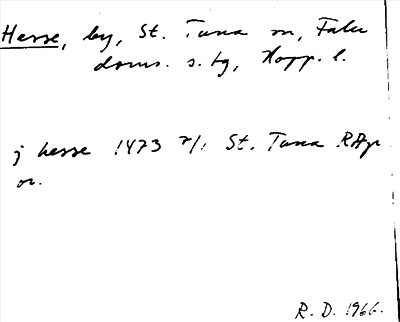 Hesse, by, St. Tuna sn, Falu
doms. s. tg, Kopp. l.
j hesse 1473 2/1 St. Tuna RAp
or.
R. D. 1966.